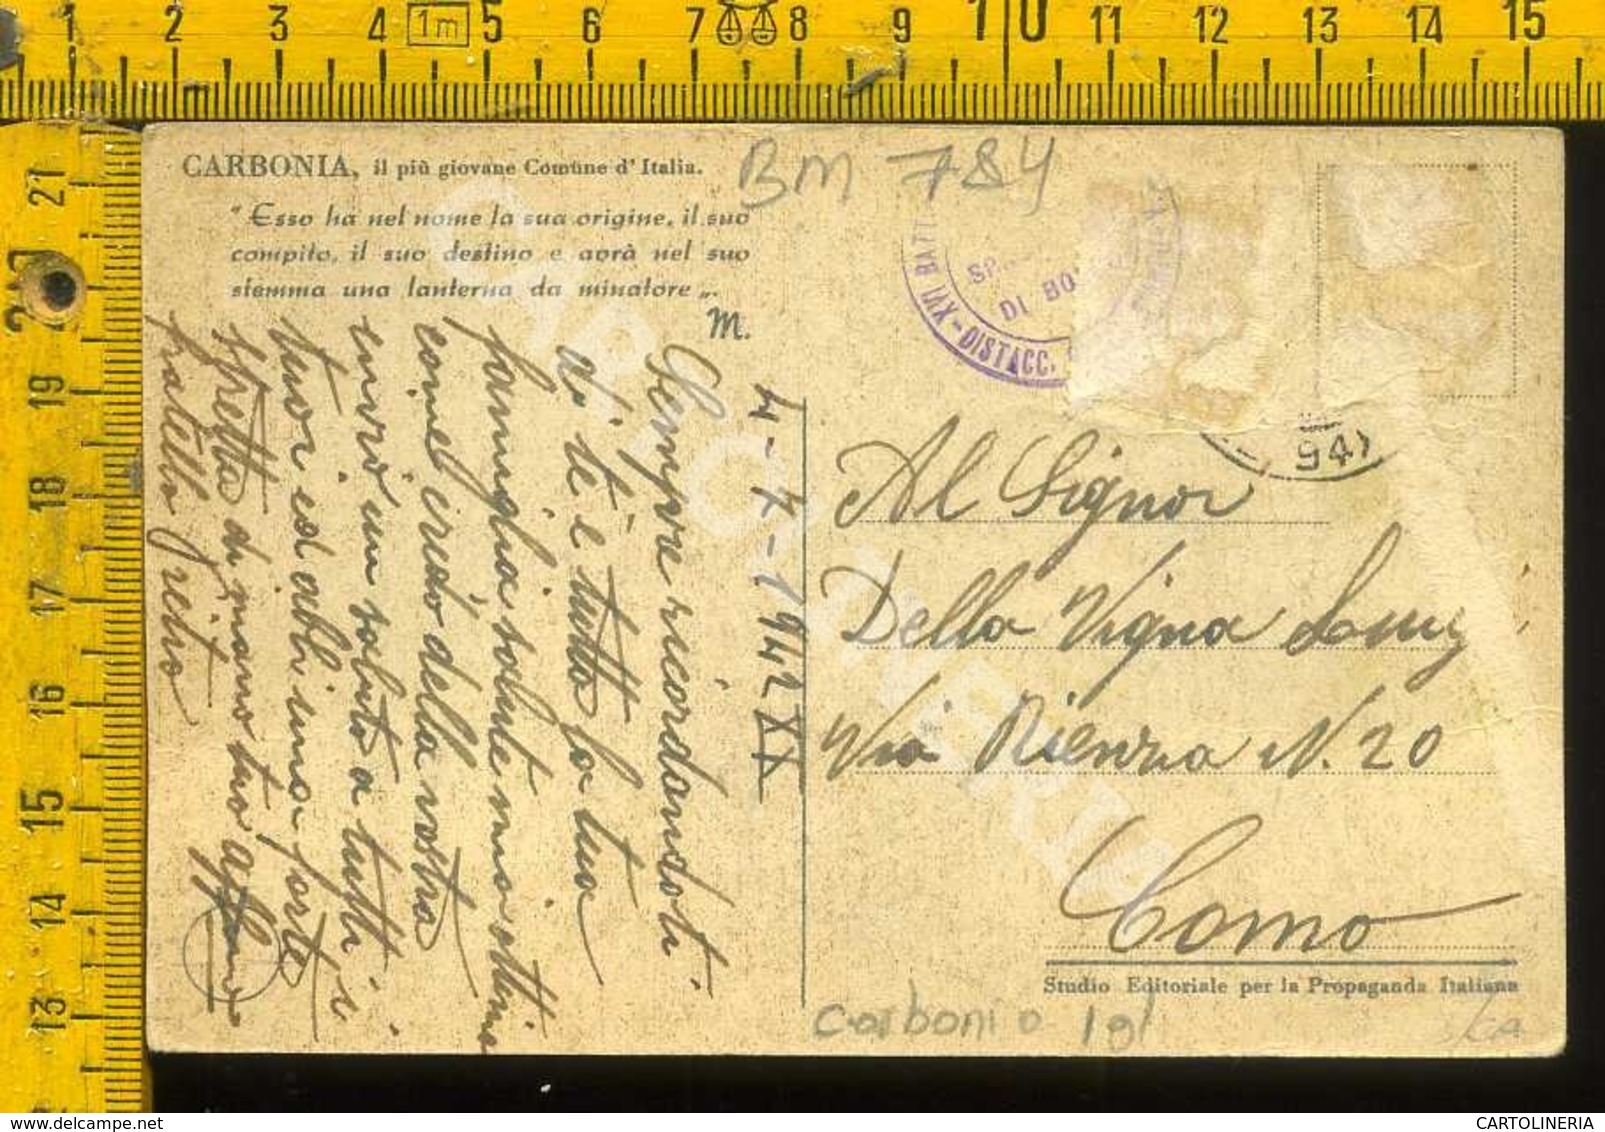 1 2 3 4 1m 5 6 7 8 9 10 11 12 13 14 15
21
20
19
18
17
16
15
14
13
CARBONIA, il più giovane Comune d'Italia.
"Esso ha nel nome la sua origine, il suo
compito, il suo destino e avrà nel suo
stemma una lanterna da minatore „.
M.
BM 784
BATT. LXVI - DISTACC.
DI BO
94
4-7-1942 XX
Sempre ricordandoti
di te e tutta la tua
famiglia salute mia ottima
come credo della vostra
invio un saluto a tutti i
tuoi ed abbi una forte
stretta di mano tuo aff.mo
fratello
Al Signor
Della Vigna
Via Rienza N. 20
Como
Studio Editoriale per la Propaganda Italiana
Carbonia
CARTOLINERIA
CARTOLINERIA